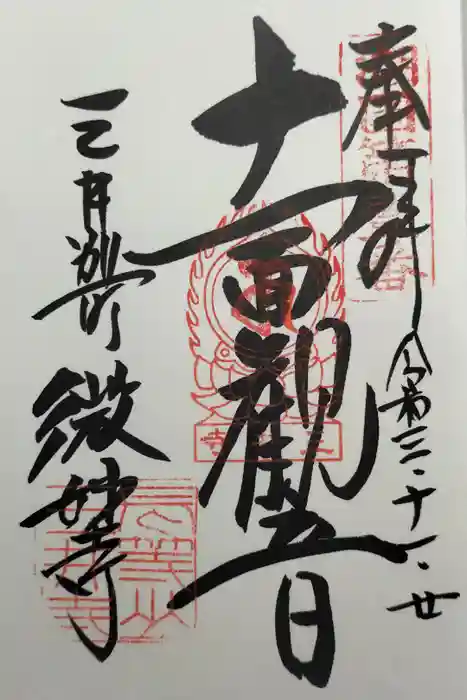 奉拝
令和三・十一・廿
十一面観音
三井別所
微妙寺